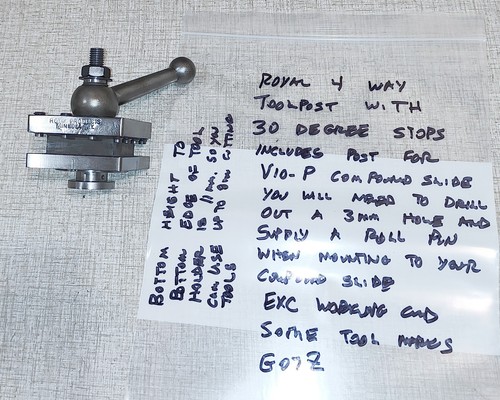 ROYAL 4 WAY
TOOLPOST WITH
30 DEGREE STOPS
INCLUDES POST FOR
V10-P COMPOUND SLIDE
YOU WILL NEED TO DRILL
OUT A 3mm HOLE AND
SUPPLY A ROLL PIN
WHEN MOUNTING TO YOUR
COMPOUND SLIDE
EXC WORKING CND
SOME TOOL MARKS
GOTZ
BOTTOM HEIGHT TO
BOTTOM EDGE OF TOOL
HOLDER IS 11mm, SO YOU
CAN USE UP TO 8mm CUTTING
TOOLS